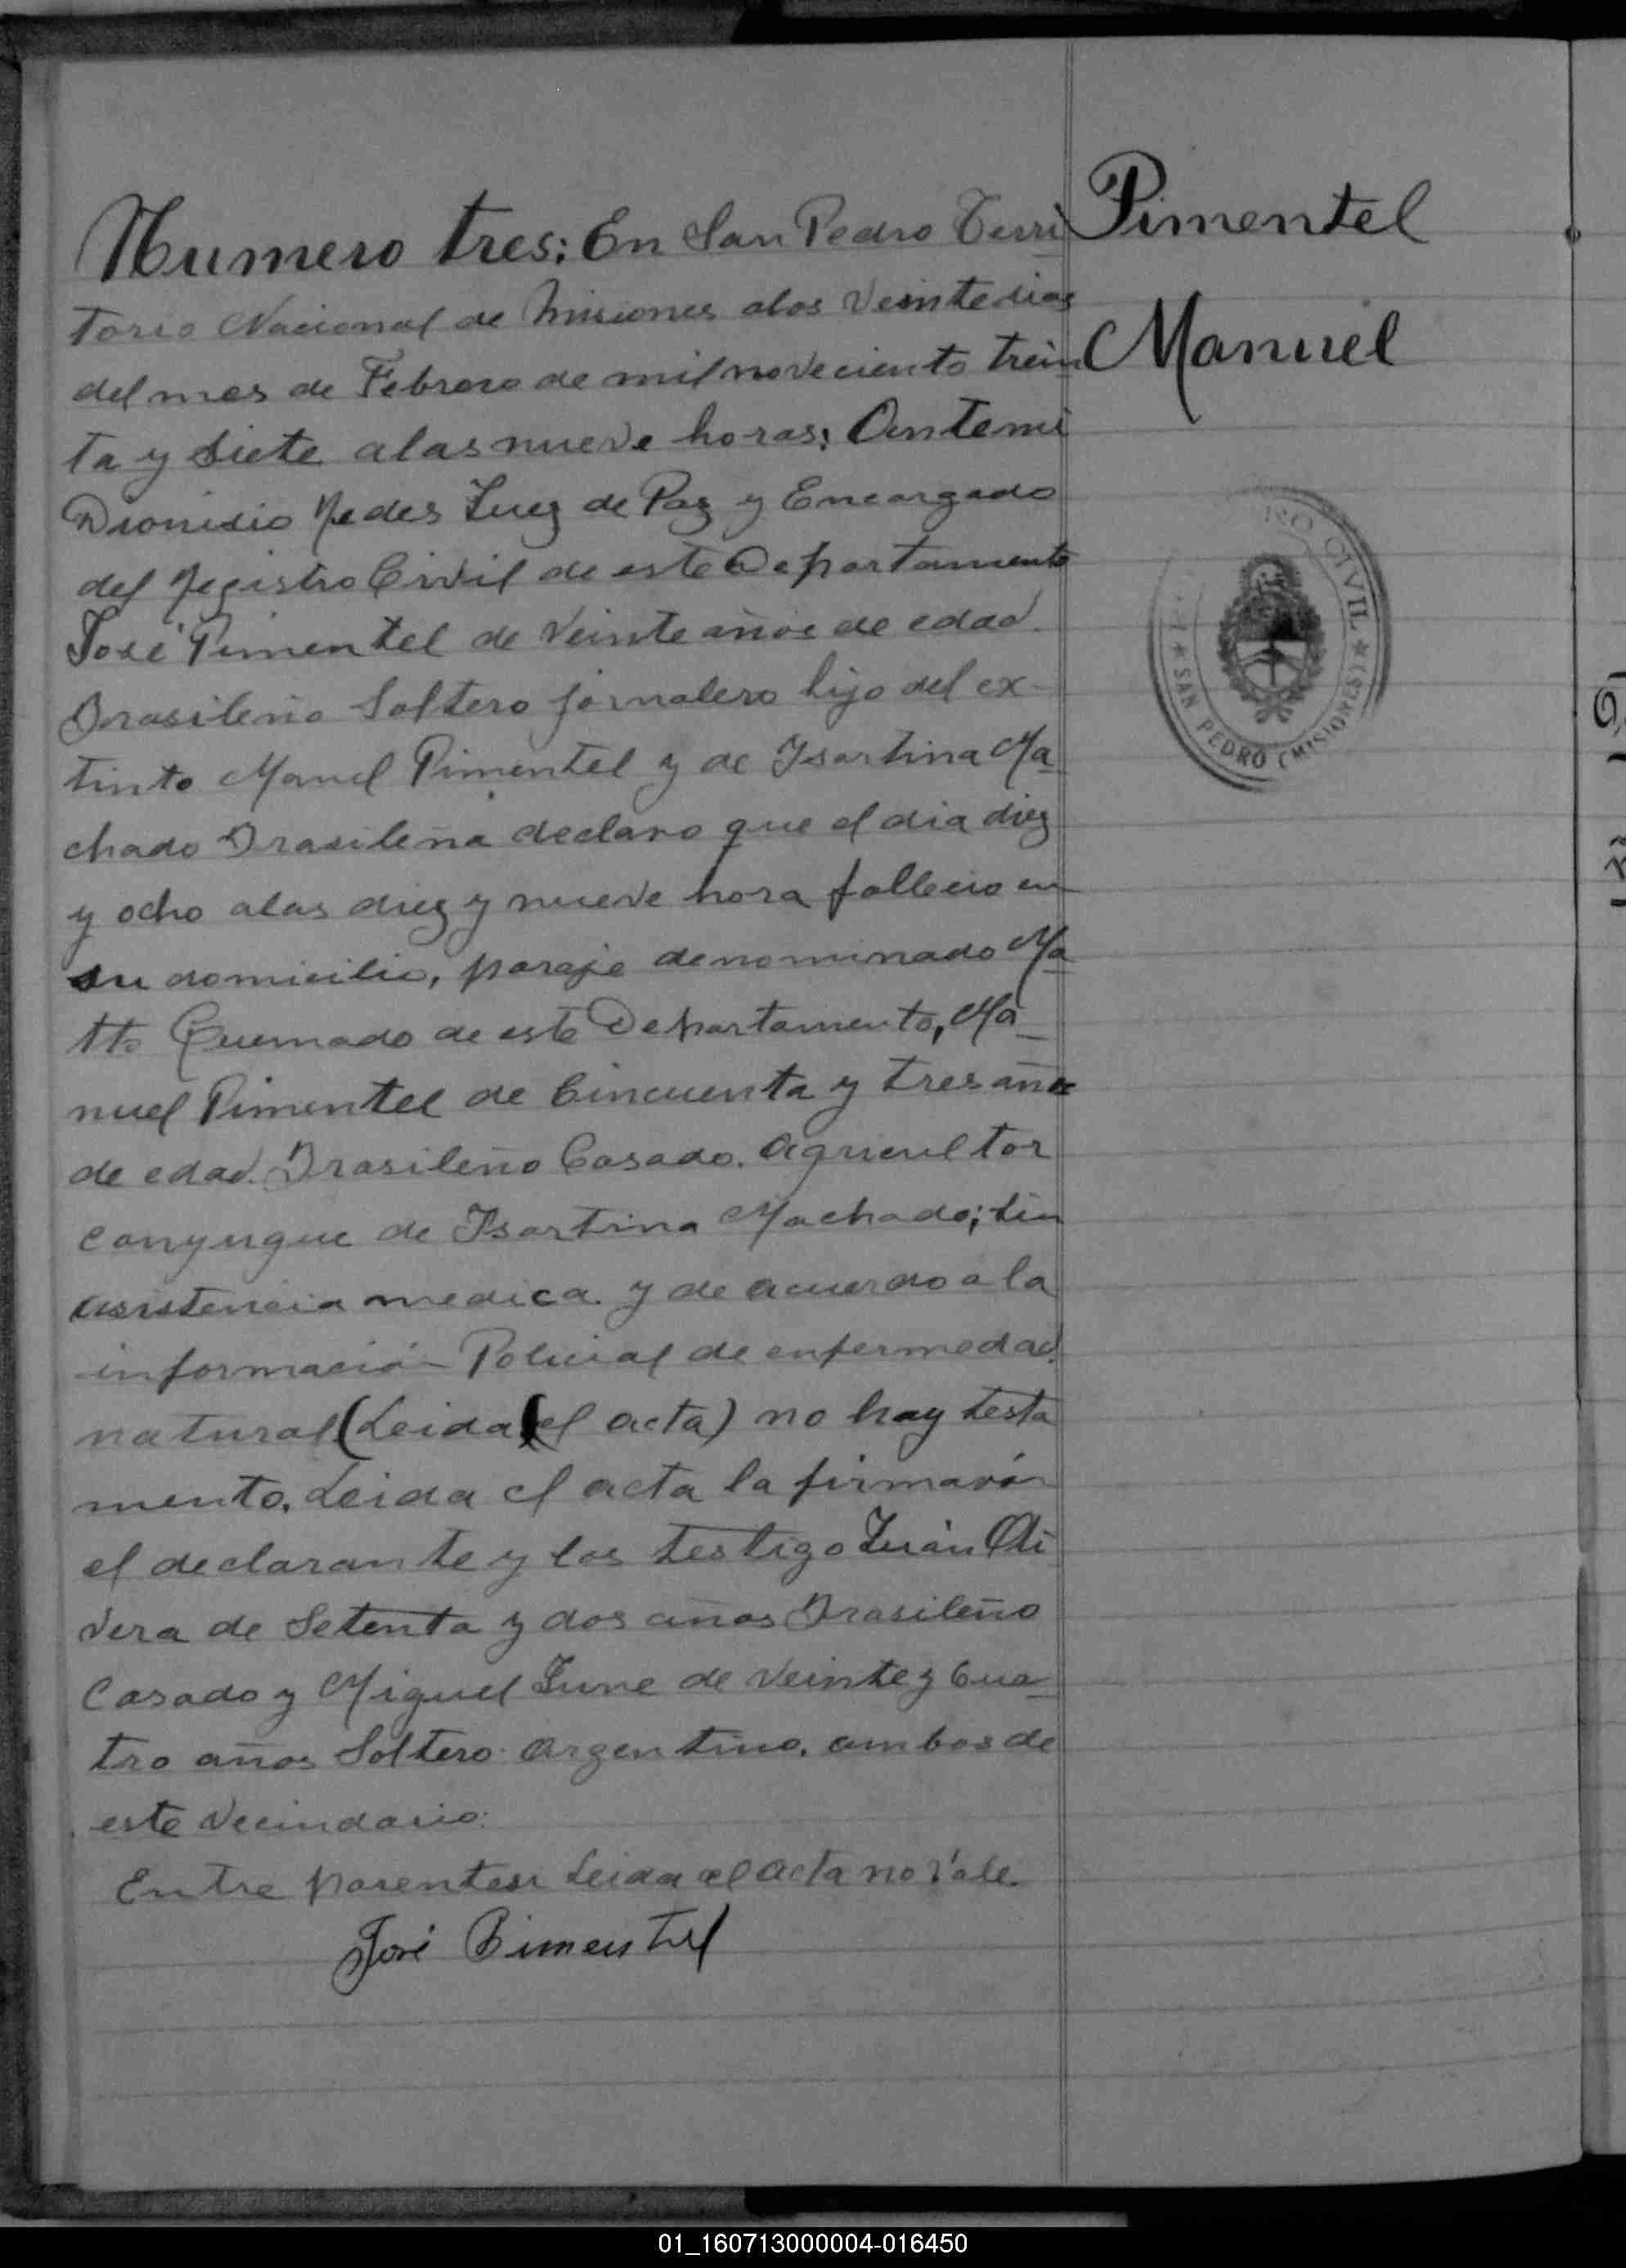 Numero tres: En San Pedro Terri
Pimentel
torio Nacional de Misiones alos Veinte dias
Manuel
del mes de Febrero de mil noveciento trein
ta y Siete alas nueve horas: Ante mi
Dionisio Juez de Paz y Encargado
del Registro Civil de este Departamento
José Pimentel de Veinte años de edad
Brasileño Soltero jornalero hijo del ex-
tinto Manuel Pimentel y de Isartina Ma
chado Brasileña declaro que el dia diez
y ocho alas diez y nueve hora fallecio en
su domicilio, paraje denominado Ma
tto Quemado de este Departamento, Ma
nuel Pimentel de Cincuenta y tres años
de edad. Brasileño Casado. Agricultor
conyugue de Isartina Machado; sin
asistencia medica. y de acuerdo a la
información Policial de enfermedad
natural (Leida el acta) no hay testa
mento. Leida el acta la firmarón
el declarante y los testigo Juán Oli
vera de Setenta y dos años Brasileño
Casado y Miguel June de Veinte y Cua
tro años Soltero Argentino. ambos de
este Vecindario.
Entre parentesi Leida el acta no Vale.
José Pimentel
RO CIVIL
★ SAN PEDRO (MISIONES) ★
01_160713000004-016450